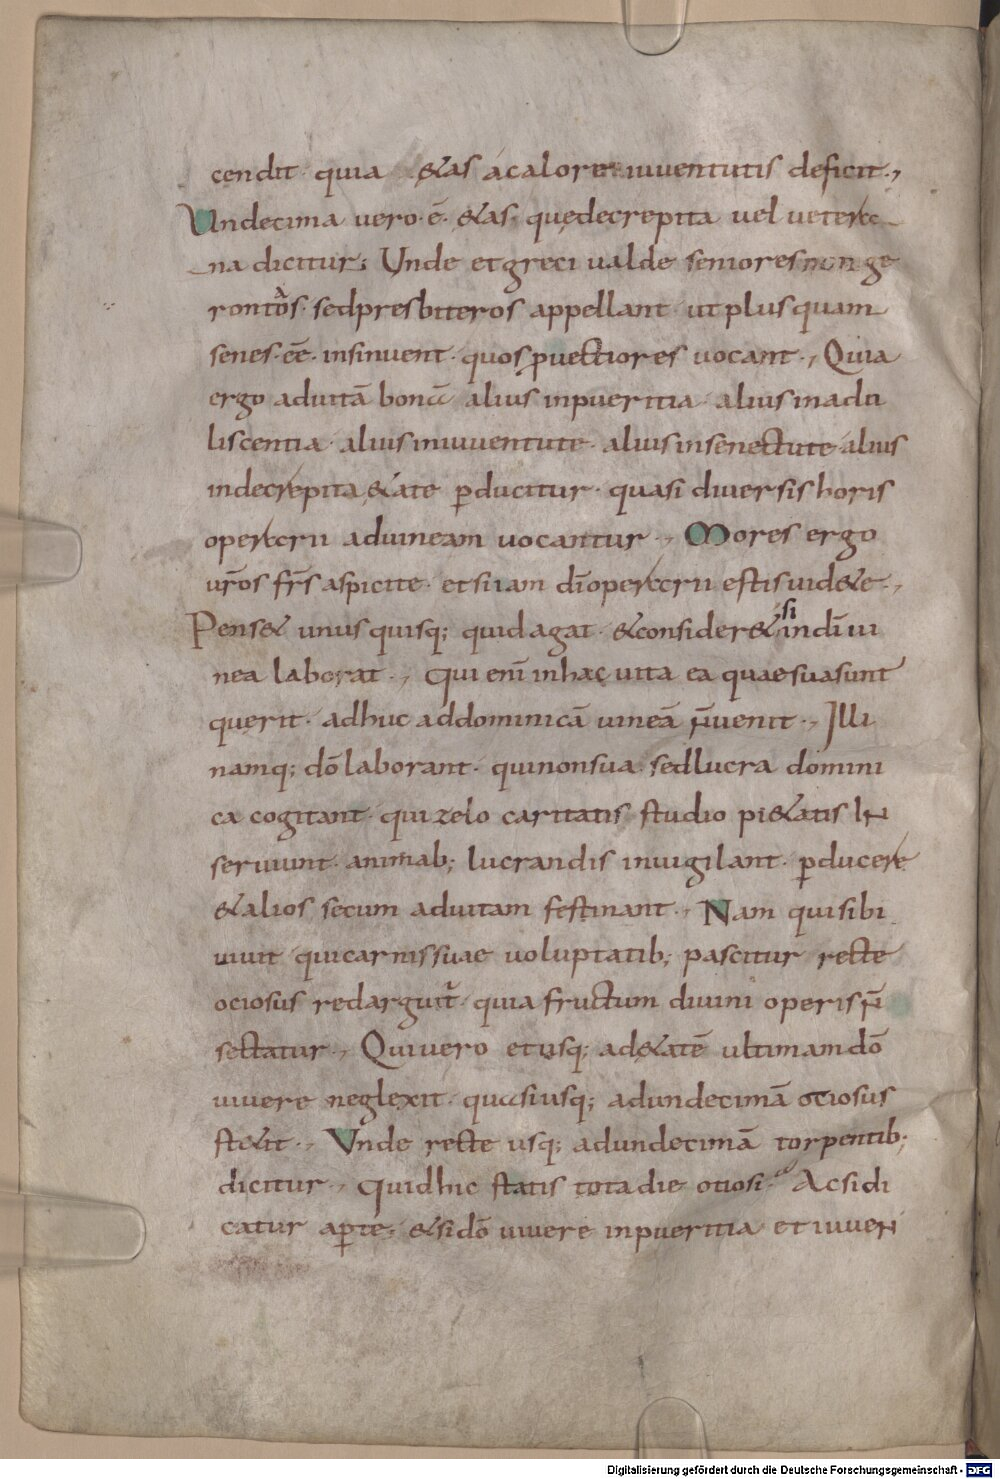 cendit· quia &as á calore iuuentutis deficit·,
Undecima uero·ē· &as· quę decrepita uel uetera
na dicitur; Unde et greci ualde seniores non ge
rontas· sed presbiteros appellant· ut plus quam
senes·eē· insinuent· quos ꝓuectiores uocant·, Quia
ergo ad uitā bonā alius in pueritia· alius in adu
liscentia· alius in iuuentute· alius in senectute· alius
in decrepita &ate ꝑducitur· quasi diuersis horis
operarii ad uineam uocantur·, Mores ergo
ur̄os fr̄s aspicite· et si iam dī operarii estis uid&e·,
Pens& unus quisq; quid agat· & consider& si in dī ui
nea laborat·, Qui eni in hac uita ea quae sua sunt
querit· adhuc ad dominicā uineā n̄ uenit·, Illi
namq; dō laborant· qui non sua· sed lucra domini
ca cogitant· qui zelo caritatis studio pi&atis IN
seruiunt· animab; lucrandis inuigilant· ꝑducere
& alios secum ad uitam festinant·, Nam qui sibi
uiuit· qui carnis suae uoluptatib; pascitur recte
ociosus redarguit̄· quia fructum diuini operis n̄
sectatur·, Qui uero et usq; ad &atē ultimam dō
uiuere neglexit· quasi usq; ad undecimā otiosus
st&it·, Unde recte usq; ad undecimā torpentib;
dicitur·, Quid hic statis tota die otiosi· Ac si di
catur aꝑte; & si dō uiuere in pueritia et iuueN
Digitalisierung gefördert durch die Deutsche Forschungsgemeinschaft - DFG